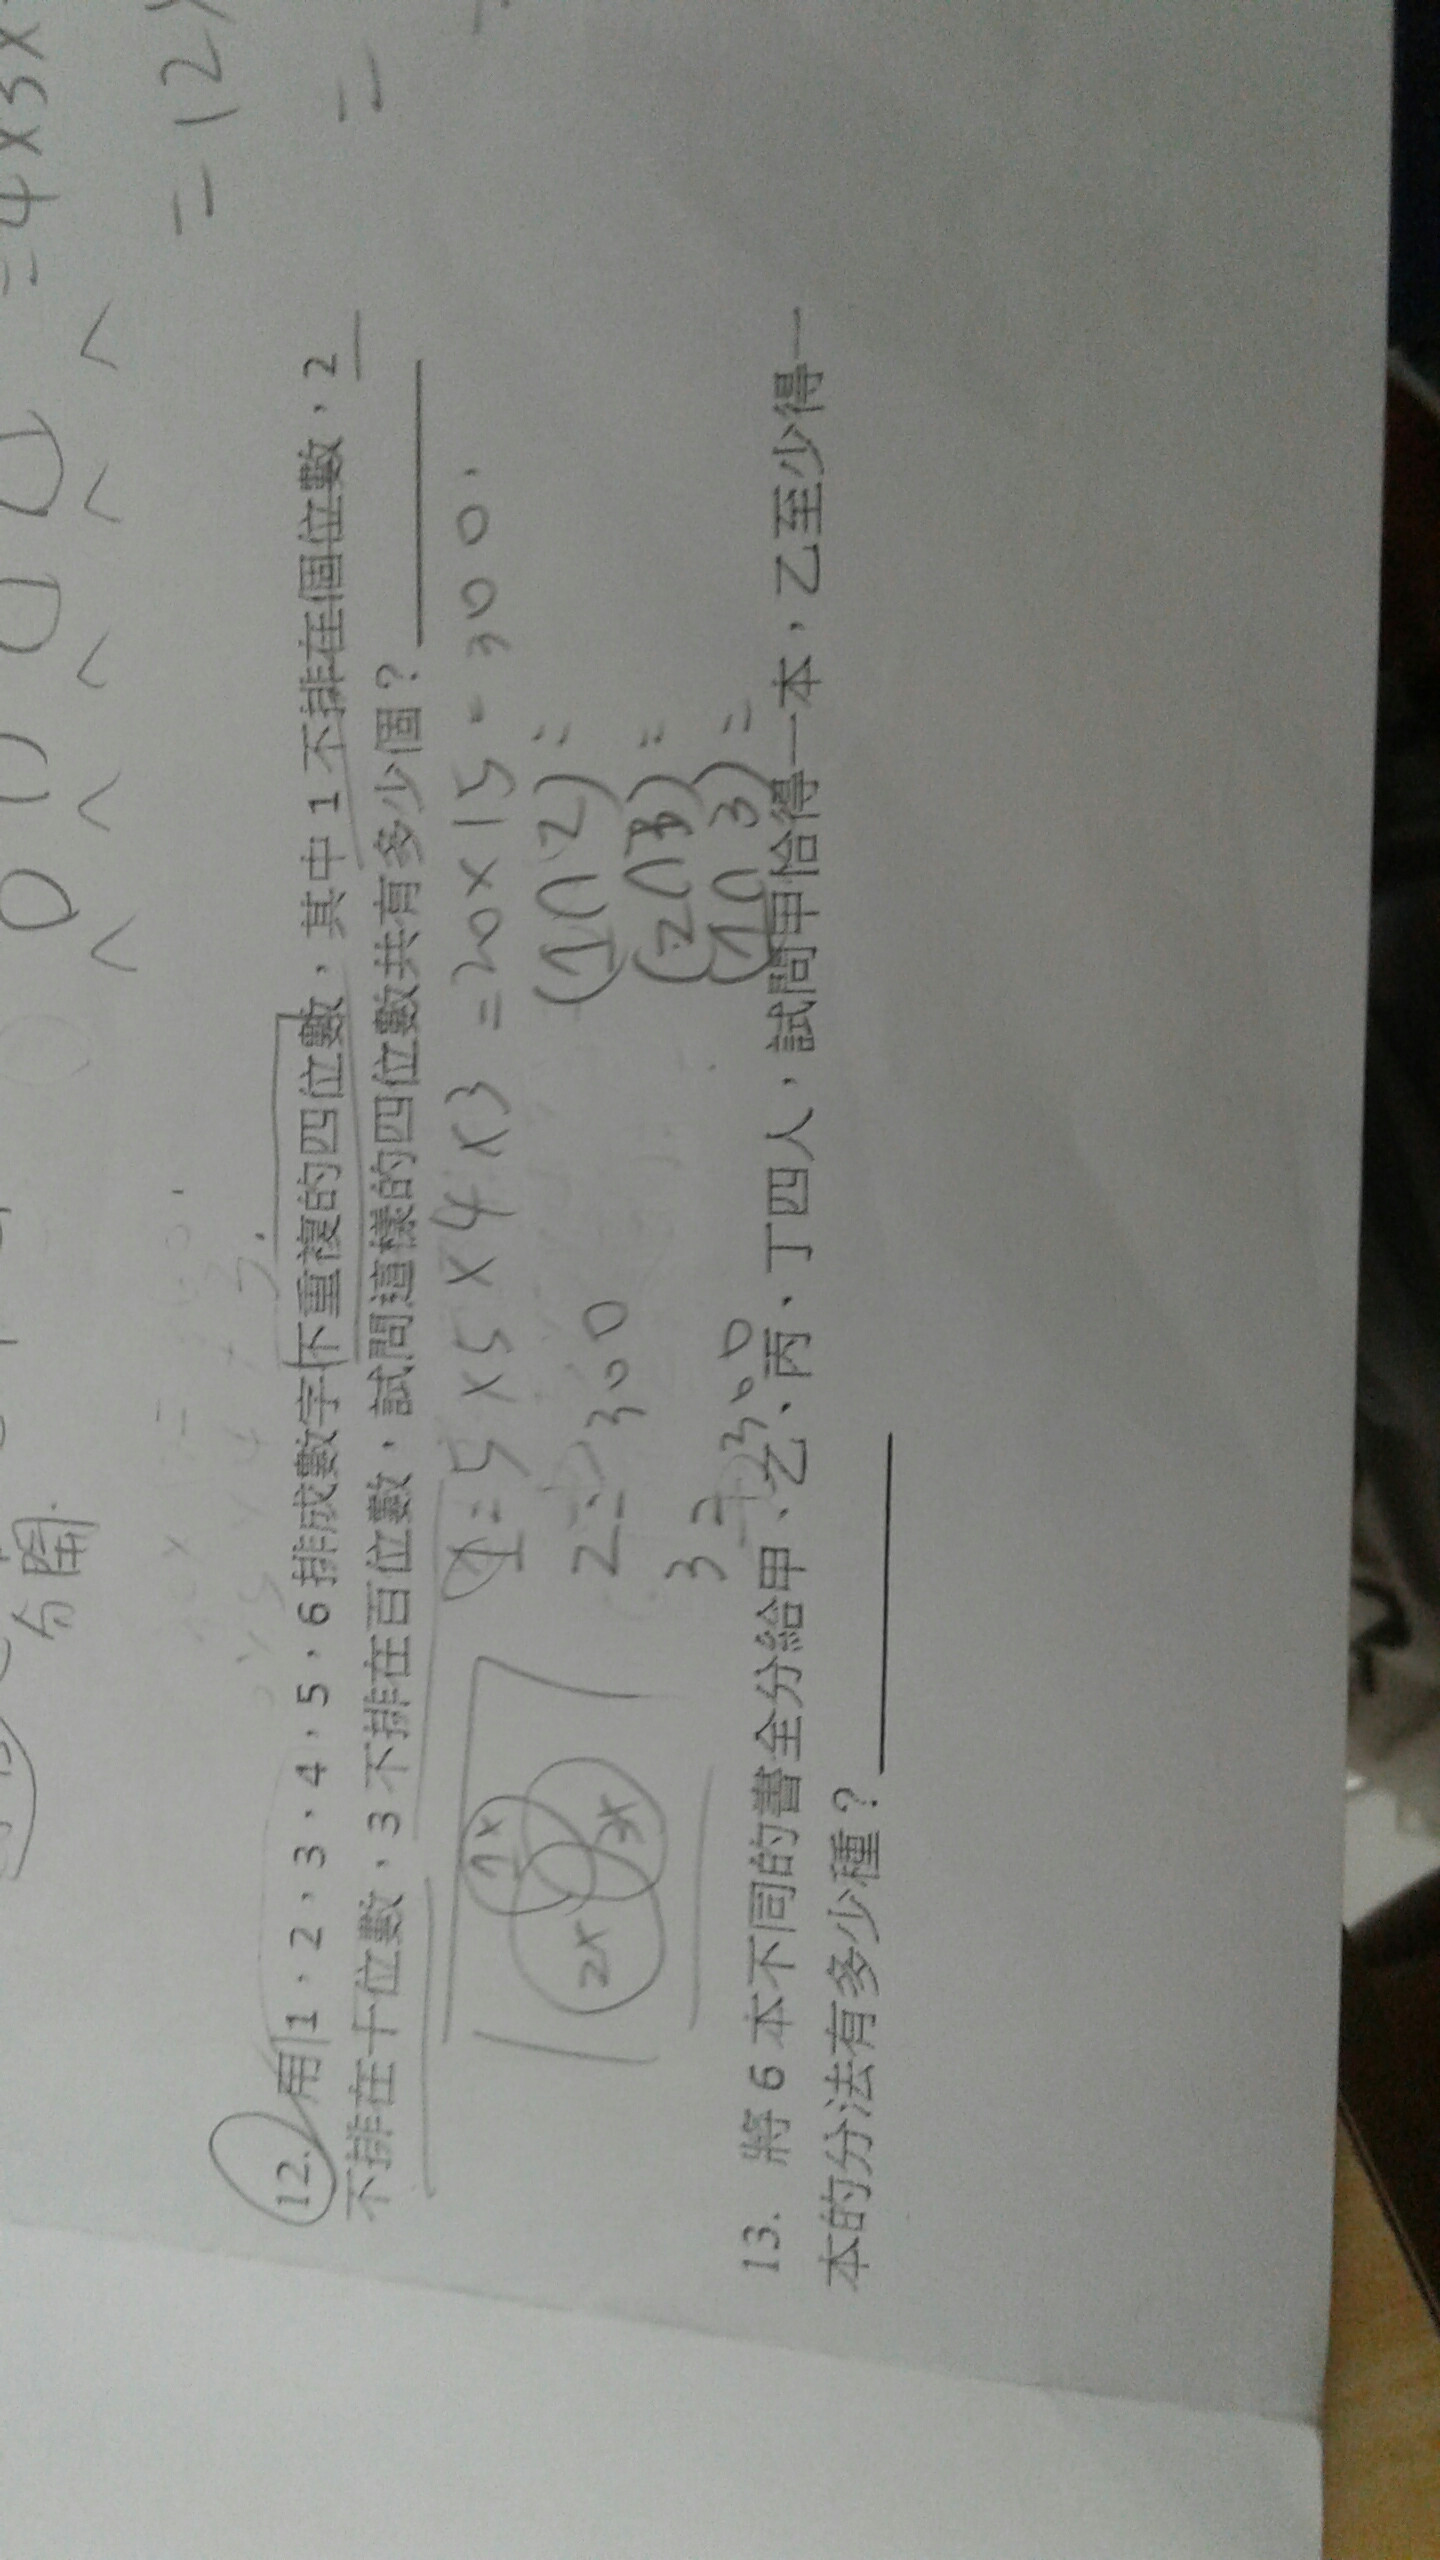 = 4 x 3 x
= 12
=
分開
12. 用 1，2，3，4，5，6 排成數字不重複的四位數，其中 1 不排在個位數，2
不排在十位數，3 不排在百位數，試問這樣的四位數共有多少個？
1 = 5 x 5 x 4 x 3 = 20 x 15 = 300.
2 = 300 (1∩2) =
(2∩3) =
3 = 300 (1∩3) =
1x
2x
3x
13. 將 6 本不同的書全分給甲、乙、丙、丁四人，試問甲恰得一本，乙至少得一
本的分法有多少種？